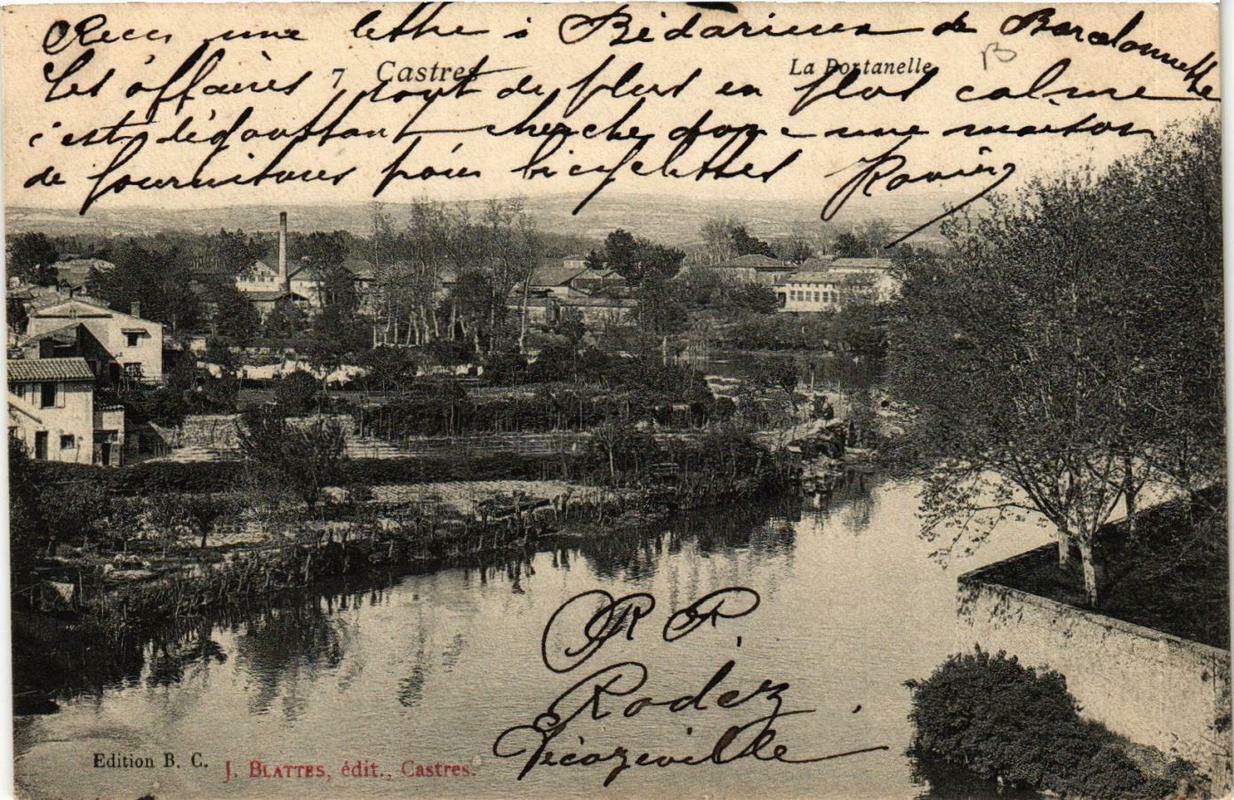 Reçu une lettre à Bédarieux de Barcelonnette
les affaires sont de plus en plus calme
7 Castres La Portanelle
c'est dégouttant cherche donc une maison
de fournitures pour bicyclettes
P R
P R,
Rodez
Décazeville.
Edition B. C. J. BLATTES, édit., Castres.